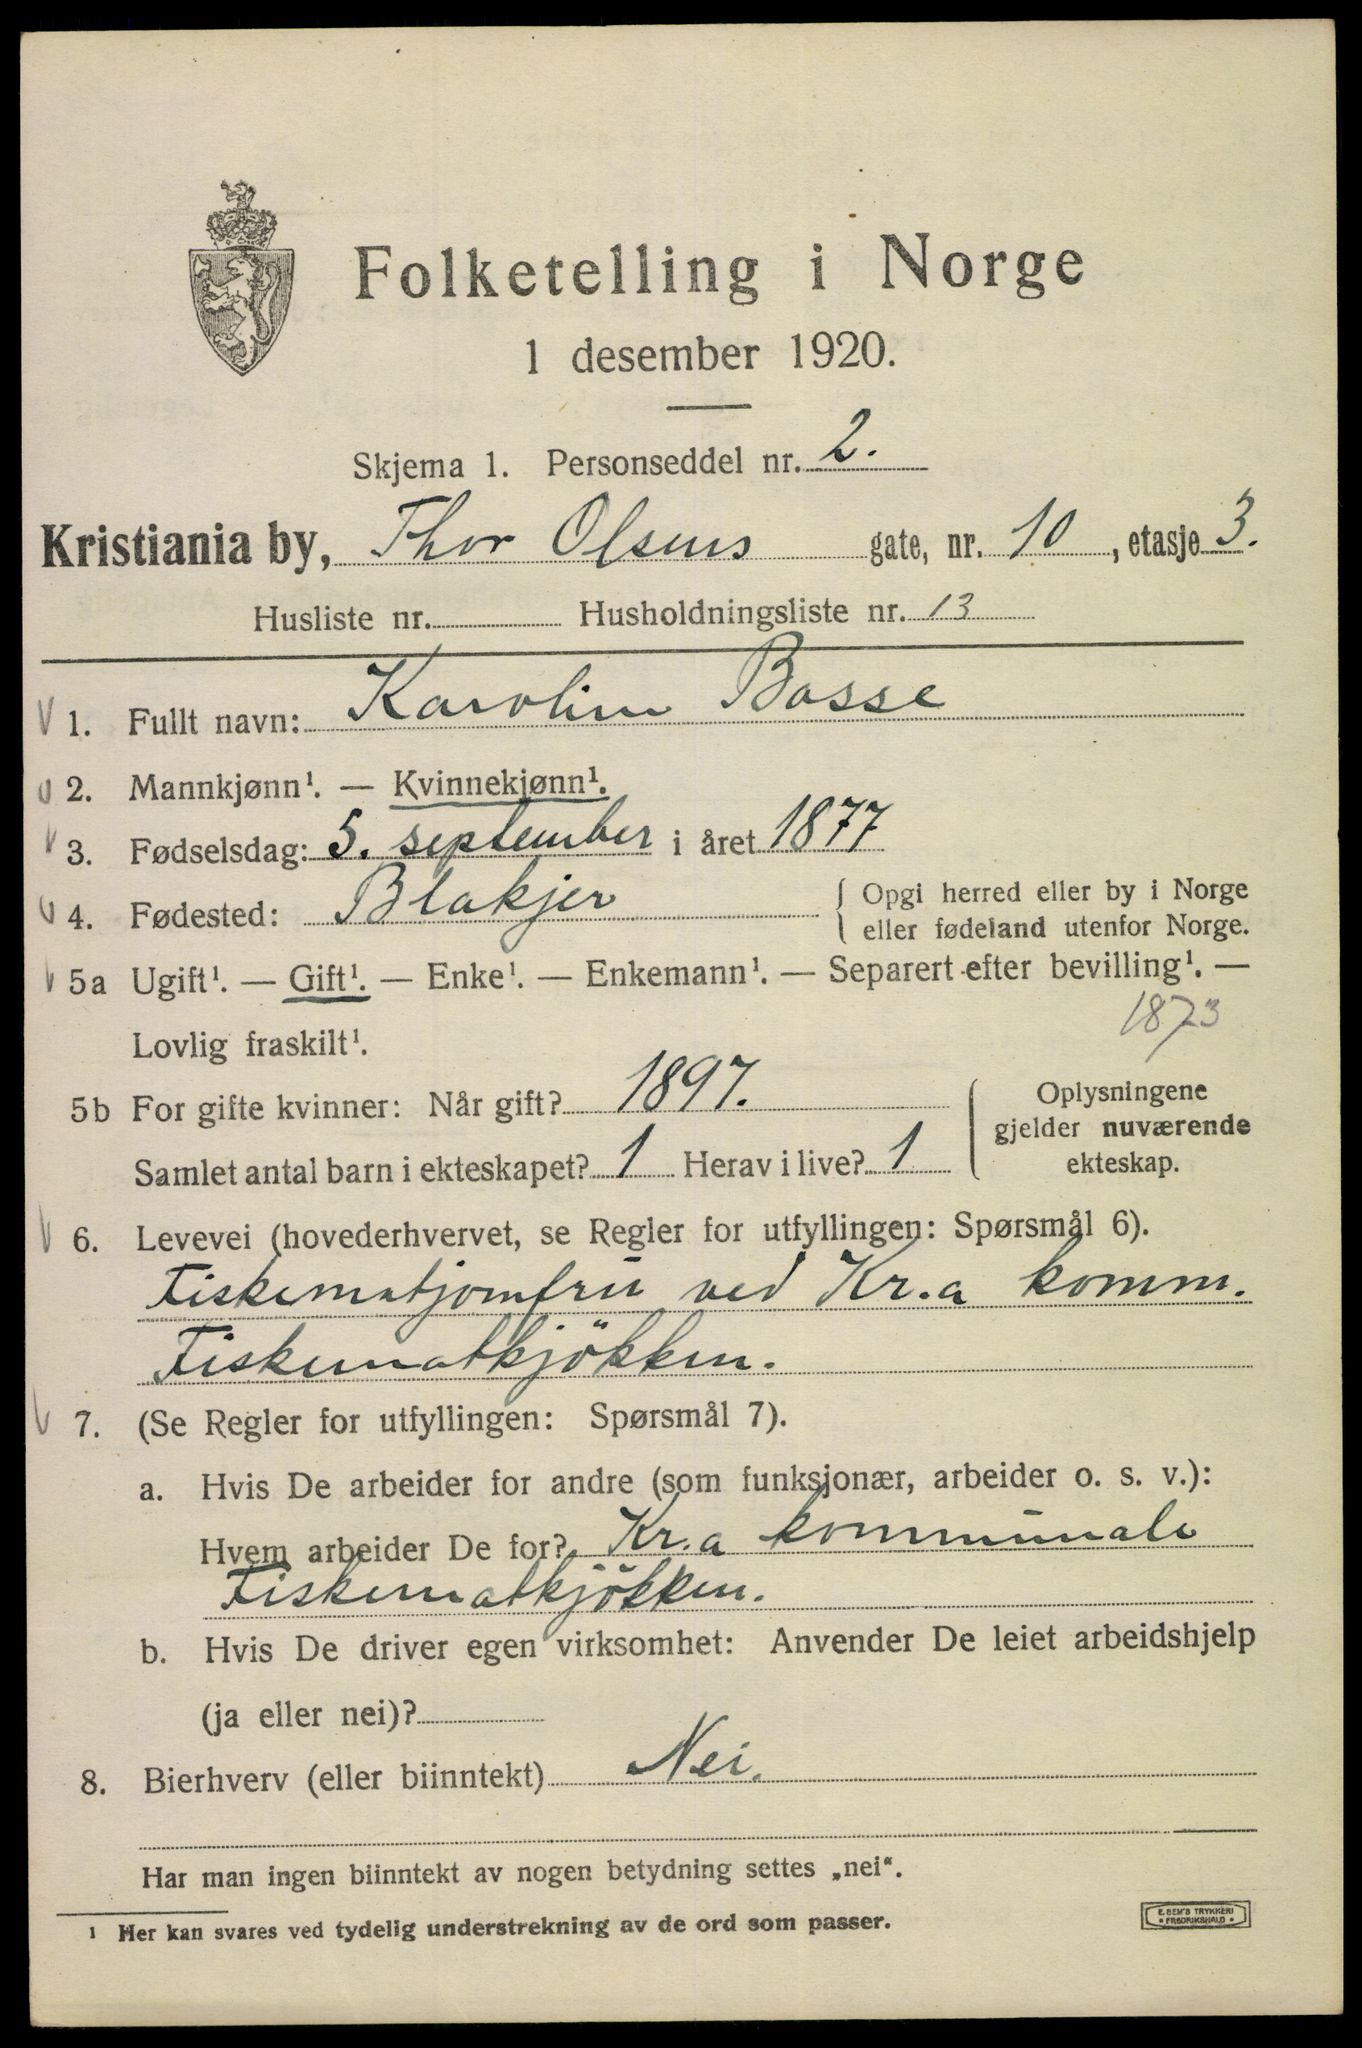 Folketelling i Norge
1 desember 1920.
Skjema 1. Personseddel nr. 2.
Kristiania by, Thor Olsens gate, nr. 10, etasje 3.
Husliste nr. Husholdningsliste nr. 13
V 1. Fullt navn: Karoline Basse
2. Mannkjønn¹. — Kvinnekjønn¹.
3. Fødselsdag: 5. september i året 1877
4. Fødested: Blakjer { Opgi herred eller by i Norge
eller fødeland utenfor Norge.
5a Ugift¹. — Gift¹. — Enke¹. — Enkemann¹. — Separert efter bevilling¹. —
Lovlig fraskilt¹. 1873
5b For gifte kvinner: Når gift? 1897.
Samlet antal barn i ekteskapet? 1 Herav i live? 1
Oplysningene
gjelder nuværende
ekteskap.
6. Levevei (hovederhvervet, se Regler for utfyllingen: Spørsmål 6).
Fiskematjomfru ved Kr.a komm.
Fiskematkjökken.
7. (Se Regler for utfyllingen: Spørsmål 7).
a. Hvis De arbeider for andre (som funksjonær, arbeider o. s. v.):
Hvem arbeider De for? Kr.a kommunale
Fiskematkjökken.
b. Hvis De driver egen virksomhet: Anvender De leiet arbeidshjelp
(ja eller nei)?
8. Bierhverv (eller biinntekt) Nei.
Har man ingen biinntekt av nogen betydning settes „nei“.
¹ Her kan svares ved tydelig understrekning av de ord som passer.
E. SEM'S TRYKKERI
• FREDRIKSHALD •